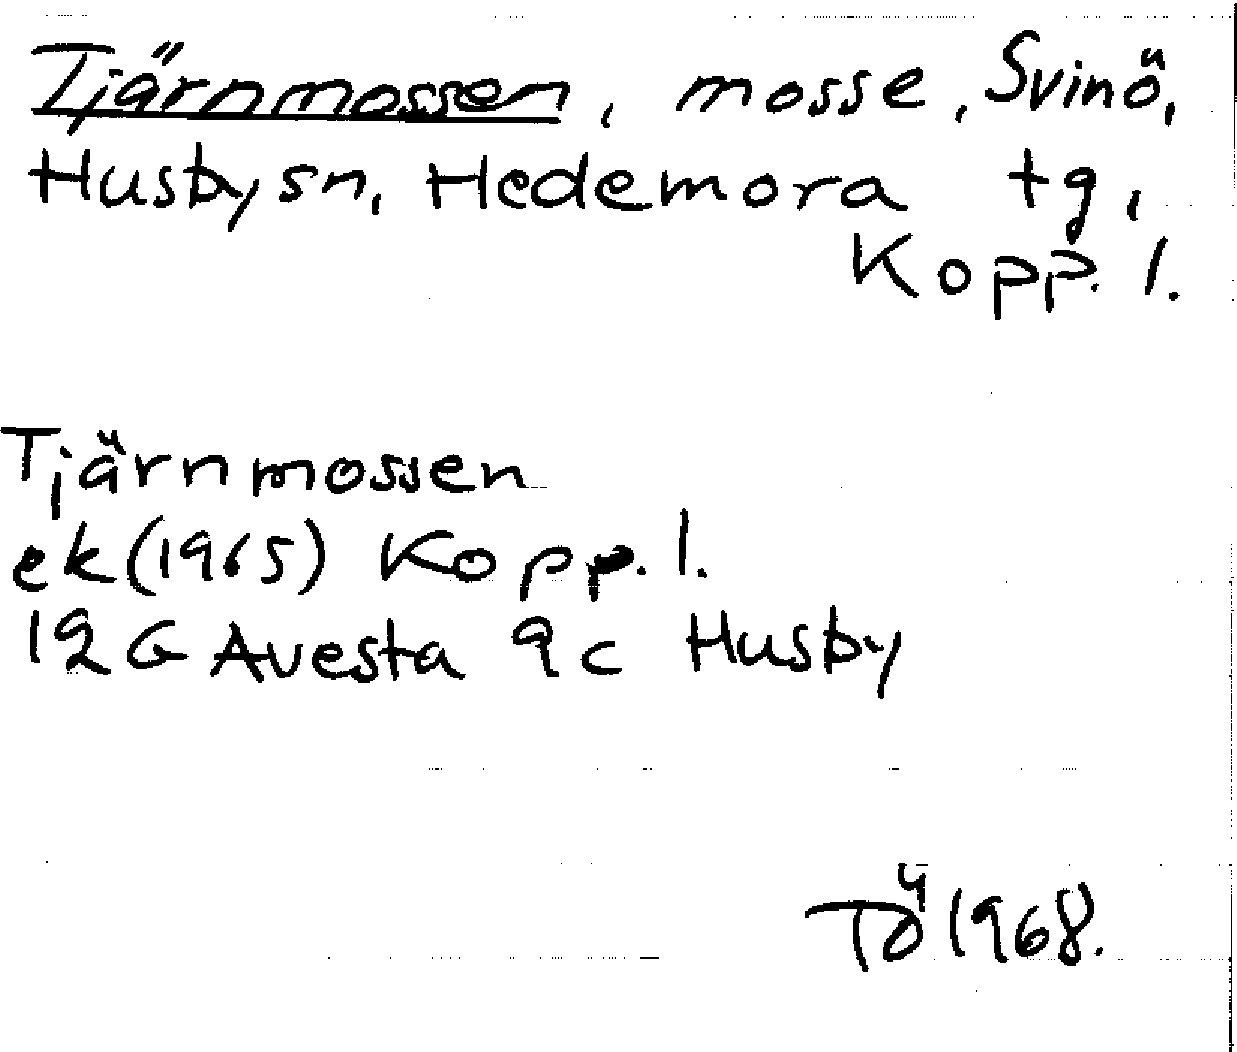 Tjärnmossen, mosse, Svinö,
Husby sn, Hedemora tg,
Kopp. l.
Tjärnmossen
ek (1965) Kopp. l.
12G Avesta 9c Husby
TÖ 1968.